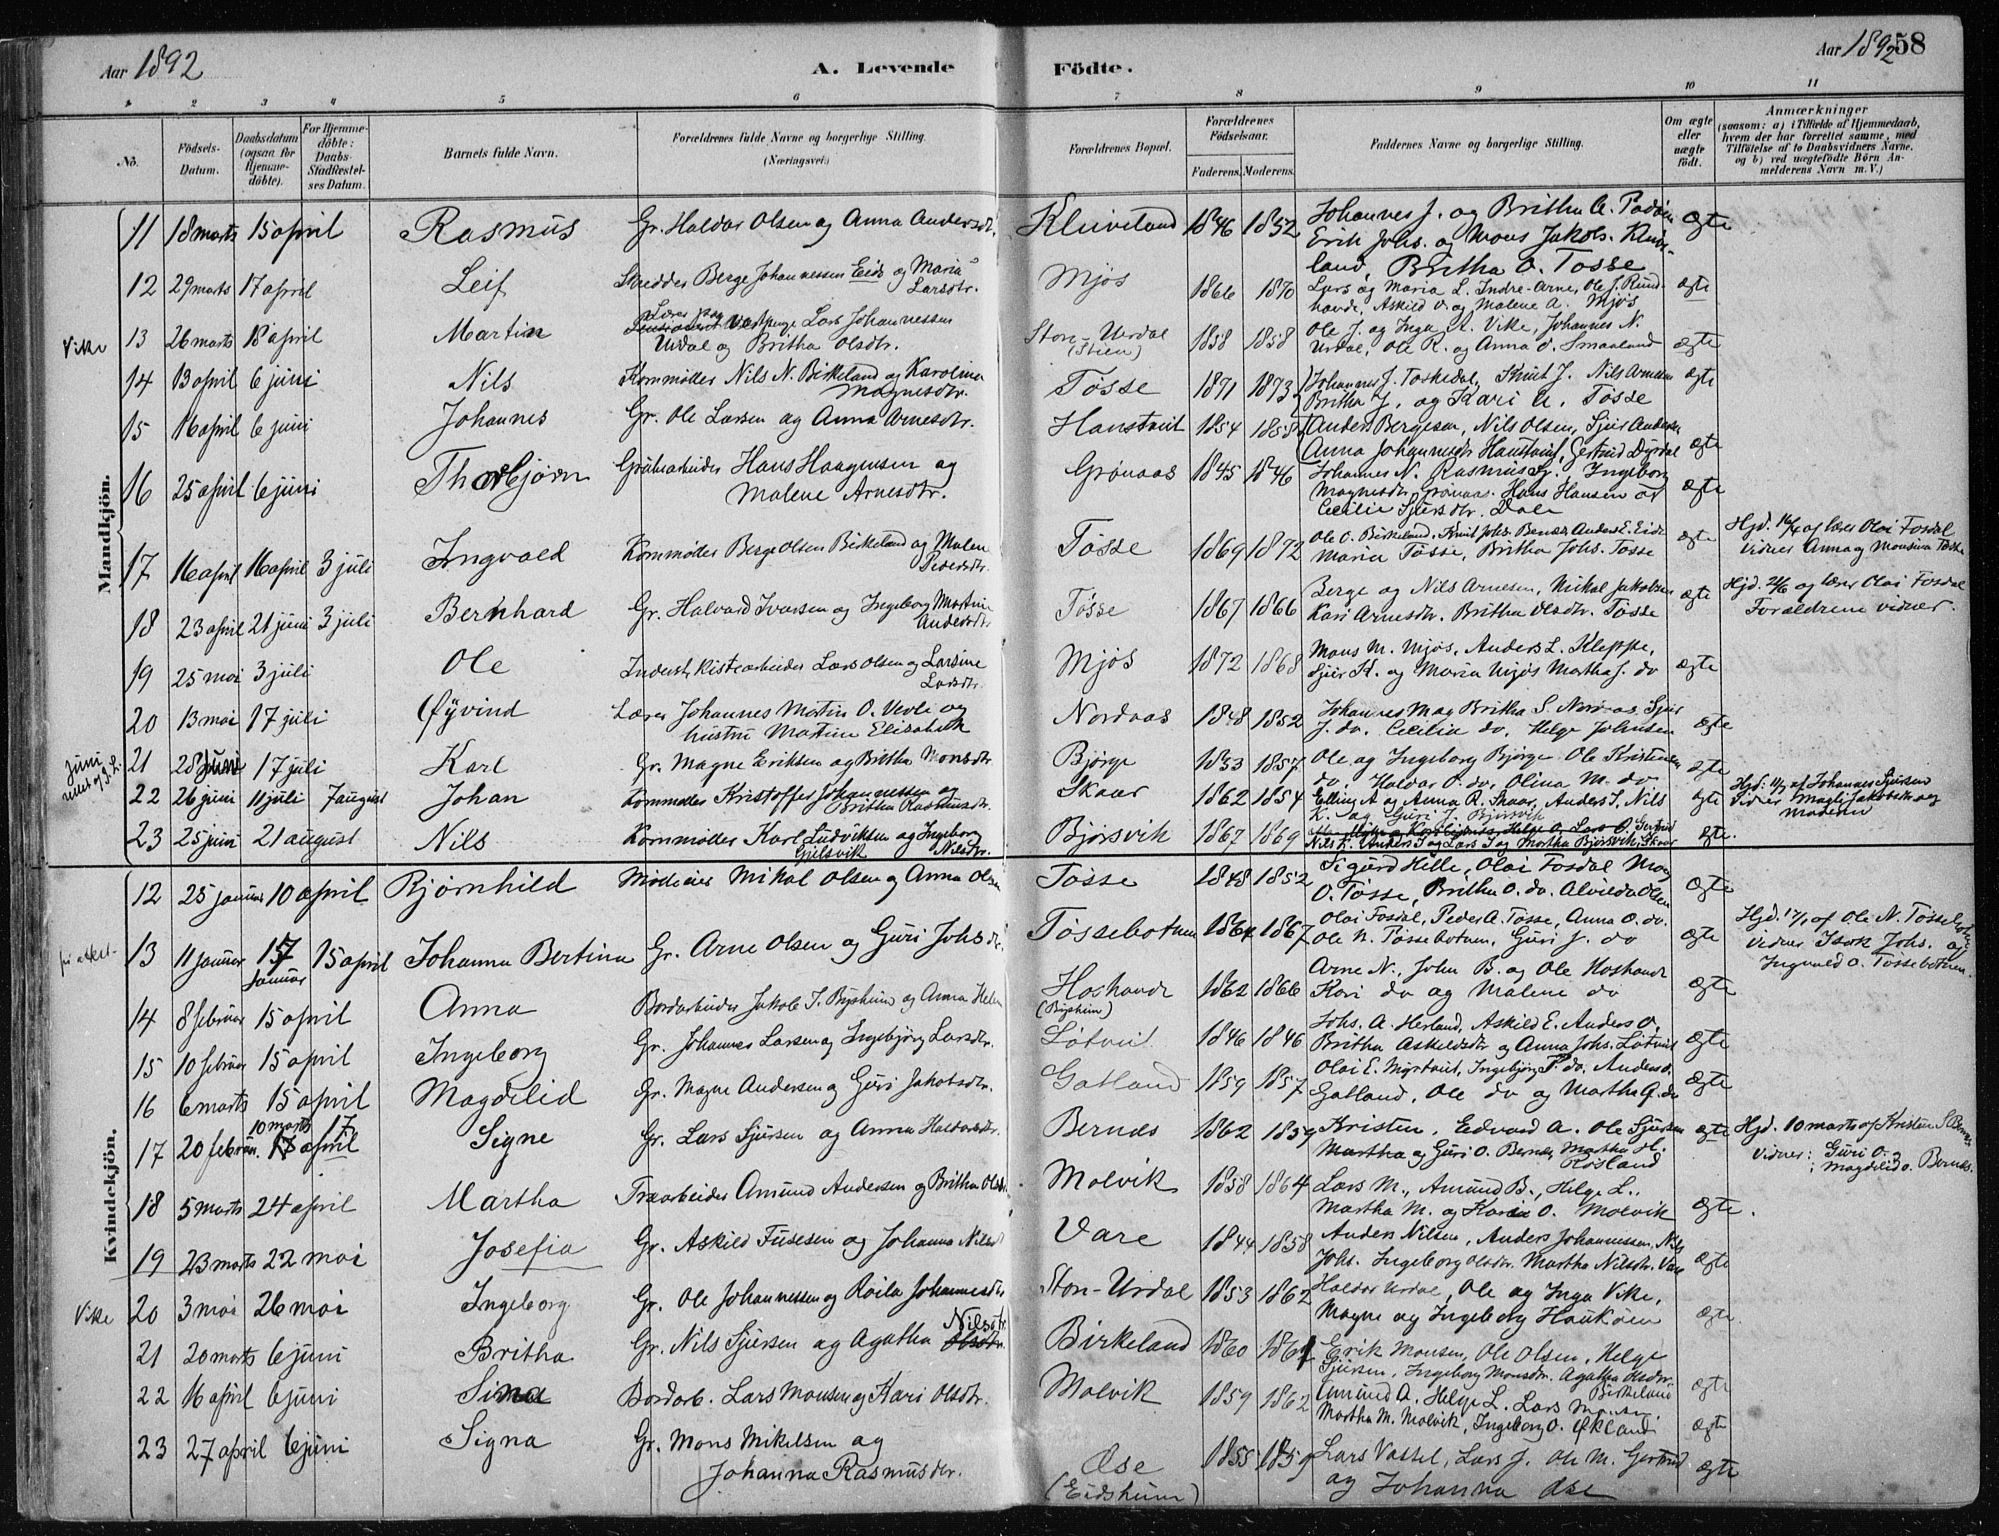 Aar 1892
A. Levende Födte.
Aar 1892 58
1 2 3 4 5 6 7 8 9 10 11
Nô.
Födsels-Datum.
Daabsdatum (ogsaa for Hjemme-döbte).
For Hjemme-döbte: Daabs-Stadfæstel-ses Datum.
Barnets fulde Navn.
Forældrenes fulde Navne og borgerlige Stilling. (Næringsvei.)
Forældrenes Bopæl.
Forældrenes Födselsaar.
Faderens. Moderens.
Faddernes Navne og borgerlige Stilling.
Om ægte eller uægte födt.
Anmærkninger (saasom: a) i Tilfælde af Hjemmedaab, hvem der har forrettet samme, med Tilföielse af to Daabsvidners Navne. og b) ved uægtefödte Börn An-melderens Navn m. V.)
Mandkjön.
11 18 marts 15 april Rasmus Gr. Haldor Olsen og Anna Andersdtr. 1846 1852 Johannes J. og Britha A. ægte
Erik Johs. og Mons Jakobs.
land, Britha O. Tøsse
12 29 marts 17 april Leif Skrædder Berge Johannessen Eide og Maria Larsdtr. Mjøs 1866 1870 Lars og Maria L. Indre-Arne, Ole J. ægte
Askild O. og Malene A. Mjøs
Vike 13 26 marts 18 april Martin Lars Johannessen Urdal og Britha Olsdtr. Stor-Urdal (Stien) 1858 1858 Ole J. og Inga A. Vike, Johannes N. Urdal, Ole R. og Anna O. Smaaland ægte
14 13 april 6 juni Nils Kornmøller Nils N. Birkeland og Karolina Magnesdtr. Tøsse 1871 1873 Johannes J. Toskedal, Knut J. Nils Arnesen ægte
Britha J. og Kari A. Tøsse
15 16 april 6 juni Johannes Gr. Ole Larsen og Anna Arnesdtr. Hanstveit 1854 1858 Anders Bergesen, Nils Olsen, Sjur Andersen ægte
Anna Johannesdtr Hanstveit, Gertrud Dyrdal
16 25 april 6 juni Thorbjørn Grubearbeider Hans Haagensen og Malene Arnesdtr. Grønaas 1845 1846 Johannes N. Rasmus og Ingeborg ægte
Magnesdtr. Grønaas. Hans Hansen og
Cecilie Sjursdtr. Dale
17 16 april 16 april 3 juli Ingvald Kornmøller Berge Olsen Birkeland og Malene Pedersdtr. Tøsse 1869 1872 Ole O. Birkeland, Knut Johs. Bernes Anders E. Eide ægte Hjd. 16/4 af lærer Olai Fosdal
Maria Tøsse, Britha Johs. Tøsse vidner Anna og Monsina Tøsse
18 23 april 21 juni 3 juli Bernhard Gr. Halvard Ivarsen og Ingeborg Martine Andersdtr Tøsse 1867 1866 Berge og Nils Arnesen, Mikal Jakobsen ægte Hjd. 21/6 af lærer Olai Fosdal
Kari Arnesdtr. Britha Olsdtr. Tøsse Forældrene vidner.
19 25 mai 3 juli Ole Inderst, kistearbeider Lars Olsen og Larsine Larsdtr. Mjøs 1872 1868 Mons M. Mjøs, Anders L. Kleppe, ægte
Sjur K. og Maria Mjøs Martha J. do
20 13 mai 17 juli Øyvind Lærer Johannes Martin O. Vevle og hustru Martine Elisabeth Nordaas 1848 1852 Johannes M og Britha S. Nordaas, Sjur ægte
J. do. Cecilia do. Helge Johnsen
juni 21 28 juni 17 juli Karl Gr. Magne Eriksen og Britha Monsdtr Bjørge 1853 1857 Ole og Ingeborg Bjørge Ole Kristensen ægte
do Haldor O. do, Olina M. do
22 26 juni 11 juli 7 august Johan Kornmøller Kristoffer Johannessen og Britha Rasmusdtr. Skaar 1862 1854 Elling A og Anna R. Skaar, Anders S. Nils ægte Hjd. 11/7 af Johannes Sjursen
K. og Guri J. Bjørsvik vidner Magli Jakobsdtr og Moderen
23 25 juni 21 august Nils Kornmøller Karl Ludviksen Gjelsvik og Ingeborg Nilsdtr. Bjørsvik 1867 1869 Helge O. Lars O. Gertrud ægte.
Nils K. Anders J og Lars J og Martha Bjørsvik, Skaar
Kvindekjön.
12 25 januar 10 april Bjørnhild Mikal Olsen og Anna Olsen Tøsse 1848 1852 Sigurd Hille, Olai Fosdal Mons ægte
O. Tøsse, Britha O. do. Alvilde Olsen
13 11 januar 17 januar 15 april Johanna Bertina Gr. Arne Olsen og Guri Johsdtr. Tøssebotnen 1864 1867 Olai Fosdal, Peder A. Tøsse, Anna O. do. ægte Hjd. 17/1 af Ole N. Tøssebotn
Ole N. Tøssebotnen, Guri J. do vidner Isak Johs. og Ingvald O. Tøssebotnen.
14 8 februar 15 april Anna Bordarbeider Jakob J. Bysheim og Anna Helene Hoshovde (Bysheim) 1862 1866 Arne N., John B. og Ole Hoshovde ægte
Kari do og Malene do
15 10 februar 15 april Ingeborg Gr. Johannes Larsen og Ingebjørg Larsdtr. Løtveit 1846 1846 Johs. A. Herland, Askild E. Anders O. ægte
Britha Askildsdtr og Anna Johs. Løtveit
16 6 marts 15 april Magdelid Gr. Magne Andersen og Guri Jakobsdtr. Gatland 1859 1857 Olai E. Myrtveit, Ingebjørg P. do. Anders O. ægte
Gatland, Ole do og Martha G. do
17 20 februar. 10 marts 17 april Signe Gr. Lars Sjursen og Anna Halvorsdtr. Bernes 1862 1859 Kristen, Edvard A. Ole Sjursen ægte Hjd. 10 marts af Kristen S Bernes
Martha og Guri O. Bernes, Martha H. Røsland vidner: Guri O. og Magdelid O. Bernes.
18 5 marts 24 april Martha Træarbeider Amund Andersen og Britha Olsdtr Molvik 1858 1864 Lars M., Amund B., Helge L., ægte.
Martha M. og Kari O. Molvik
19 23 marts 22 mai Josefia Gr. Askild Fusesen og Johanna Nilsdtr Vare 1844 1858 Anders Nilsen, Anders Johannessen, Nils ægte
Johs. Ingeborg Olsdtr. Martha Nilsdtr. Vare
Vike 20 3 mai 26 mai Ingeborg Gr. Ole Johannessen og Røila Johannesdtr Stor-Urdal 1853 1862 Haldor Urdal, Ole og Inga Vike, ægte.
Magne og Ingeborg Haukøen
21 20 marts 6 juni Britha Gr. Nils Sjursen og Agatha Nilsdtr. Birkeland 1860 1861 Erik Monsen, Ole Olsen, Helge ægte
Sjursen, Ingeborg Monsdtr. Agatha Olsdtr. Birkeland
22 16 april 6 juni Sina Bordarb. Lars Monsen og Kari Olsdtr. Molvik 1859 1862 Amund A. Helge L. Lars ægte
Martha M. Molvik, Ingeborg O. Økland
23 27 april 6 juni Signa Gr. Mons Mikelsen og Johanna Rasmusdtr. Øse (Eidsheim) 1855 1859 Lars Vassel, Lars J. Ole M. Gertrud ægte
og Johanna Øse